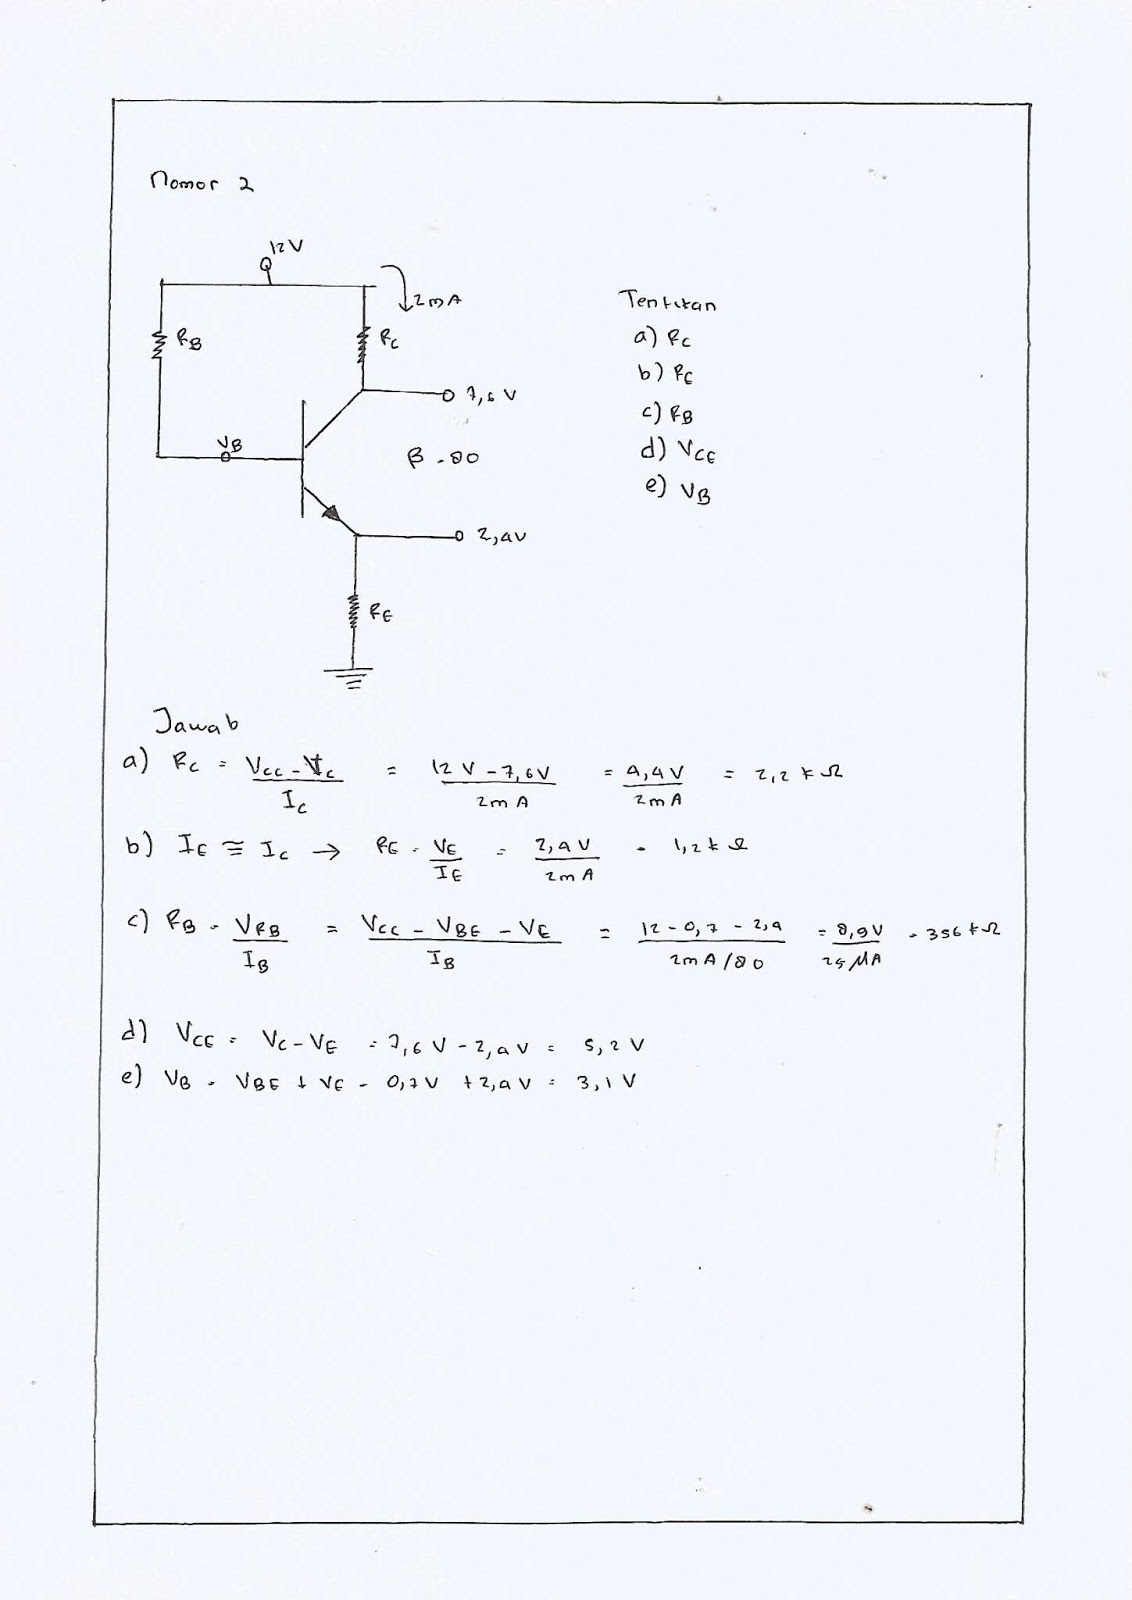 Nomor 2
12V
2mA
RB
RC
7,6 V
VB
β = 80
2,4V
RE
Tentukan
a) RC
b) RE
c) RB
d) VCE
e) VB
Jawab
a) RC = VCC - VC / IC = 12 V - 7,6V / 2mA = 4,4 V / 2mA = 2,2 kΩ
b) IE ≅ IC → RE = VE / IE = 2,4 V / 2mA = 1,2 kΩ
c) RB = VRB / IB = VCC - VBE - VE / IB = 12 - 0,7 - 2,4 / 2mA/80 = 8,9V / 25 μA = 356 kΩ
d) VCE = VC - VE = 7,6 V - 2,4 V = 5,2 V
e) VB = VBE + VE = 0,7V + 2,4 V = 3,1 V